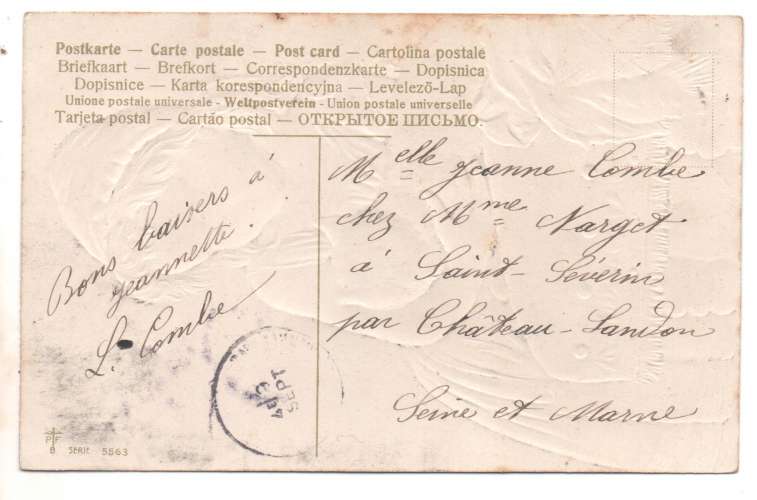 Postkarte — Carte postale — Post card — Cartolina postale
Briefkaart — Brefkort — Correspondenzkarte — Dopisnica
Dopisnice — Karta korespondencyjna — Levelező-Lap
Unione postale universale - Weltpostverein - Union postale universelle
Tarjeta postal — Cartão postal — ОТКРЫТОЕ ПИСЬМО.
Bons baisers à
Jeannette.
L. Combe
Melle Jeanne Combe
chez Mme Narget
à Saint-Séverin
par Château-Landon
Seine et Marne
SEPT
PF
B SERIE 5563